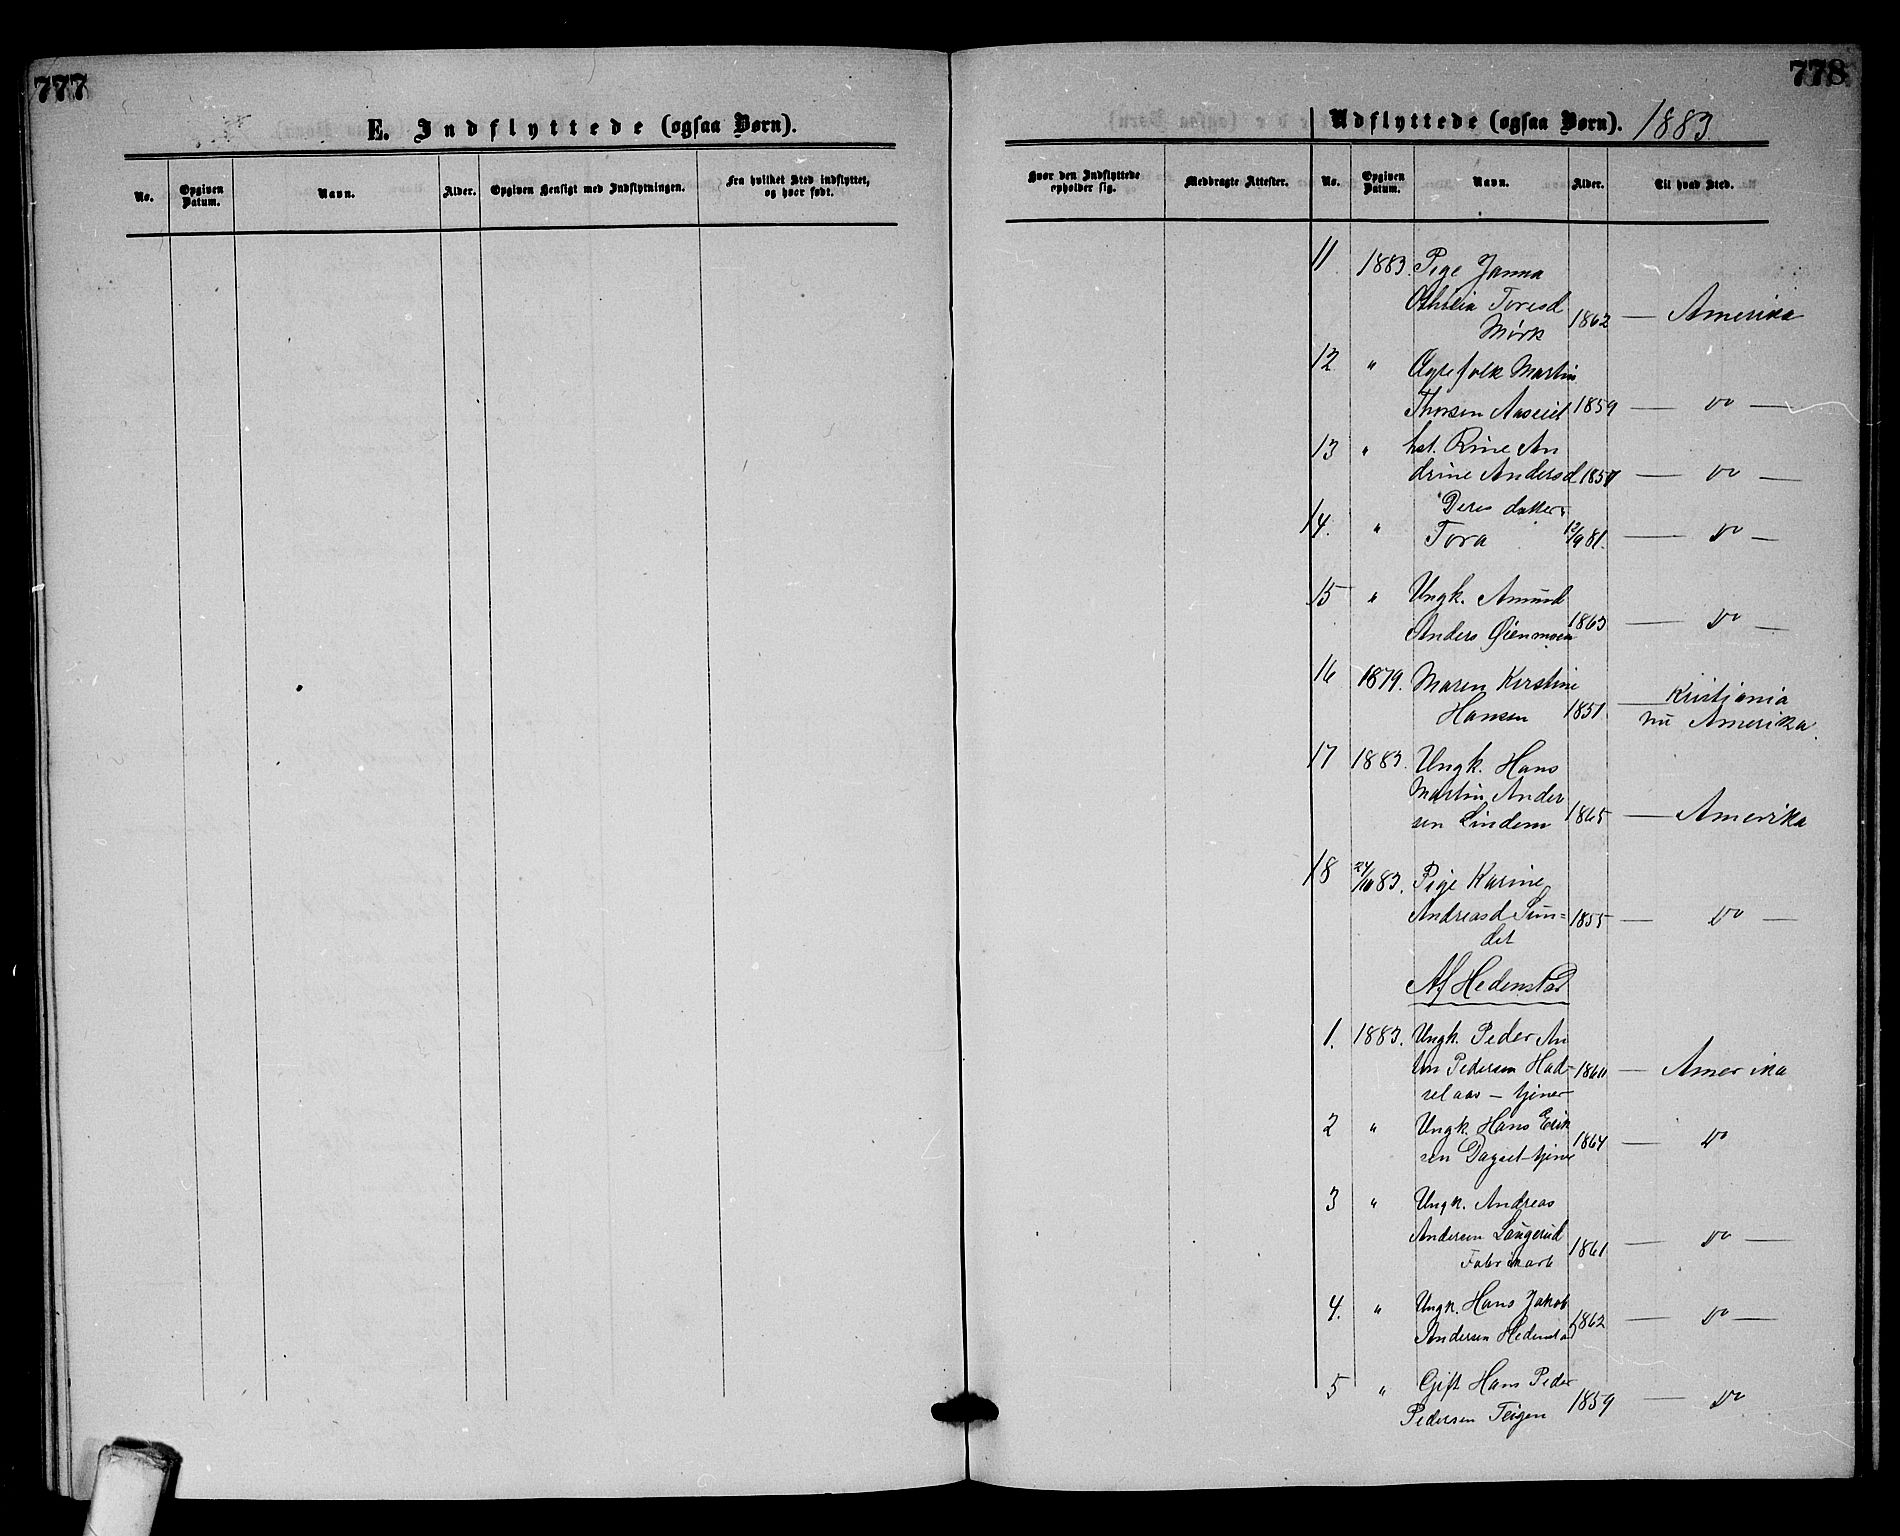 777
E. Indflyttede (ogsaa Børn).
No.
Opgiven Datum.
Navn.
Alder.
Opgiven Hensigt med Indflytningen.
Fra hvilket Sted indflyttet, og hvor født.
778
Udflyttede (ogsaa Børn). 1883
Hvor den Indflyttede opholder sig.
Medbragte Attester.
No.
Opgiven Datum.
Navn.
Alder.
Til hvad Sted.
11 1883. Pige Janna
Toresd
Mørk 1862 — Amerika
12 " Martin
Thorsen Aaseiet 1859 — Do —
13 " hst. An
drine Andersd — Do —
Deres datter
14. " Tora 12/9 81. — Do —
15 " Ungk. Amund
Anders Øienmoen 1863 — Do —
16 1879. Maren Kirstine
Kristiania
Hansen 1851. nu Amerika.
17 1883. Ungk. Hans
Martin Ander
sen Lindem 1865 — Amerika
18 24/10 83. Pige Karine
Andreasd Sun= 1855 — Do —
det
Af Hedenstad
1. 1883. Ungk. Peder An
ton Pedersen Had- — Amerika
selaas — tjener
2 " Ungk. Hans Erik
sen tjene 1864 — Do
3 " Ungk. Andreas
Andersen Langerud 1861 — Do —
Fabrikarb
4. " Ungk. Hans Jakob
Andersen Hedenstad 1862 — Do —
5 " Gift Hans Peder
Pedersen Teigen 1859 — Do